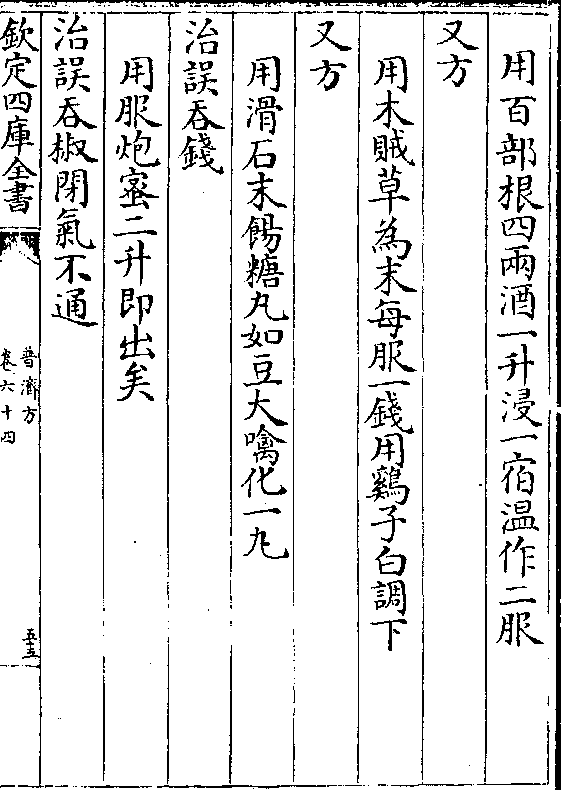 用百部根四兩酒一升浸一宿温作二服
又方
用木賊草為末每服一錢用鷄子白調下
又方
用滑石末餳糖丸如豆大噙化一丸
治誤吞錢
用服炮蜜二升即出矣
治誤吞椒閉氣不通
欽定四庫全書
普濟方
卷六十四
五十五